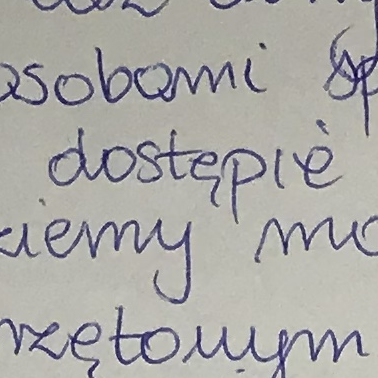 asobami sp
dostępie
ziemy mo
rzętowym